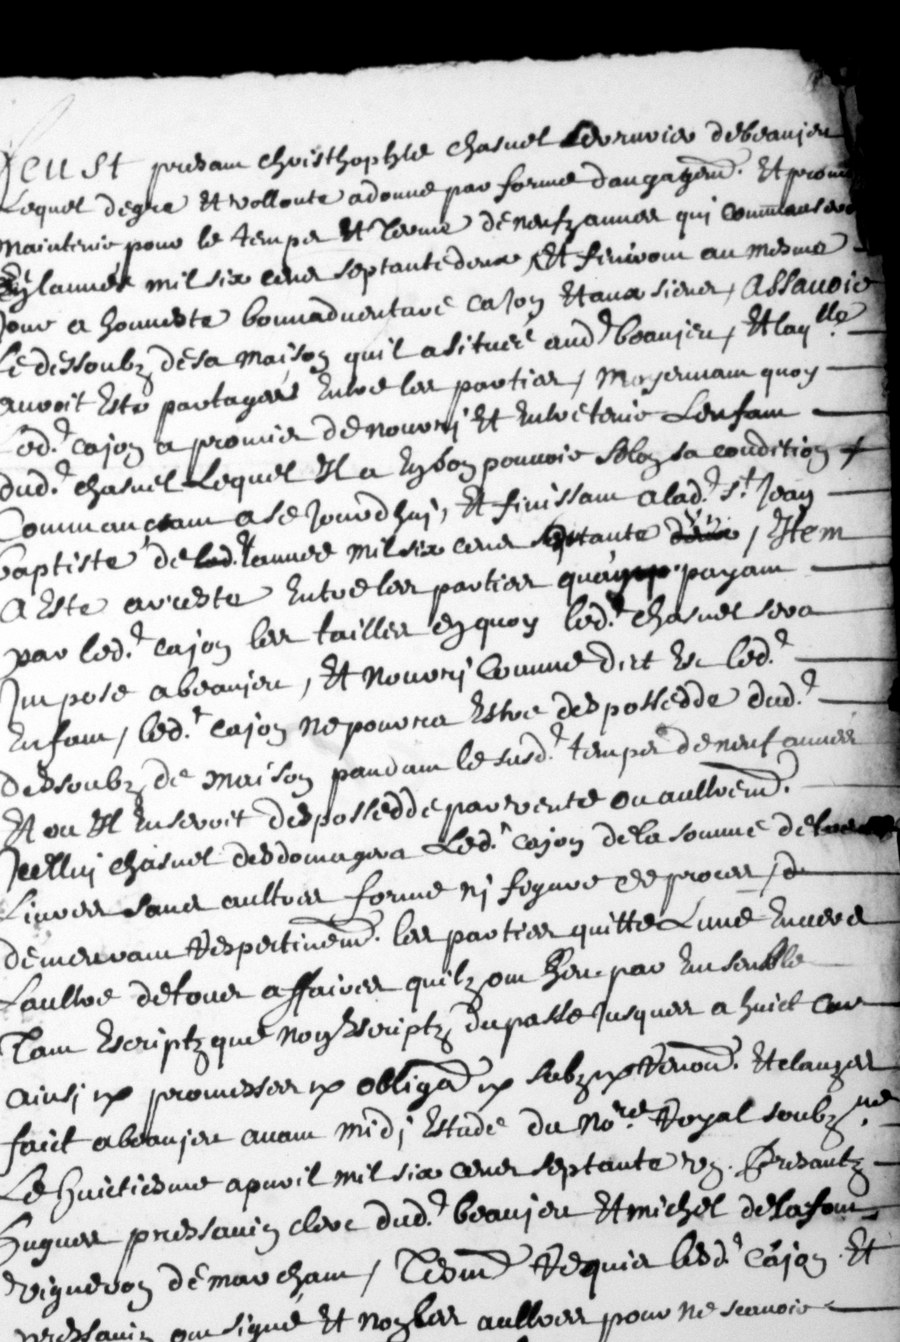 Feust presant Christhophle Chasuel Serrurier de beaujeu
Lequel de gre et vollonte a donne par forme dangagem.t Et promet
maintenir pour le temps et terme de neufz annees qui commansero
lannee mil six cens septante deux, Et finiront au mesme
Jour a honneste bonnadventure Cajon Et aux siens, Assavoir
Le dessoubz de sa maison quil a située aud.t beaujeu, Et laqlle
avoit Este partagée Entre les parties, moyennant quoy
Led.t Cajon a promis de nourrj Et Entretenir Lenfant
dud.t Chasuel Lequel Il a En son pouvoir selon sa condition
Commancant a Se Jourdhuj, Et finissant a lad.t St Jean
baptiste de lannee mil six cens septante, Item
A Este arreste Entre les parties que payant
par led.t Cajon les tailles En quoy led.t Chasuel sera
Impose a beaujeu, Et nourrj Comme dict Est led.t
Enfant, led.t Cajon ne pourra Estre despossedde dud.t
dessoubz de maison pandant le susd.t temps de neuf annees
Et ou Il En seroit despossedde par vente ou aultrem.t
Icelluj Chasuel desdomagera Led.t Cajon de la somme de
Livres sans aultres forme nj figure de proces,
demeurant Respectivem.t les parties quitte Lune Envers
Laultre de tous affaires quilz ont Heu par Ensemble
Tant Escriptz que non Escriptz du passe Jusques a huict Car
ainsj &c promesses &c obliga.on &c subz &c Renon.t Et clauzes
faict a beaujeu avant midj Estude du No.re Royal soubz.ne
Le huictiesme apvril mil six cens septante Presantz
hugues pressavin clerc dud.t beaujeu Et michel de lafont
vigneron de marcham, Tesm Requis led.t Cajon Et
pressavin ont signé Et non les aultres pour ne scavoir